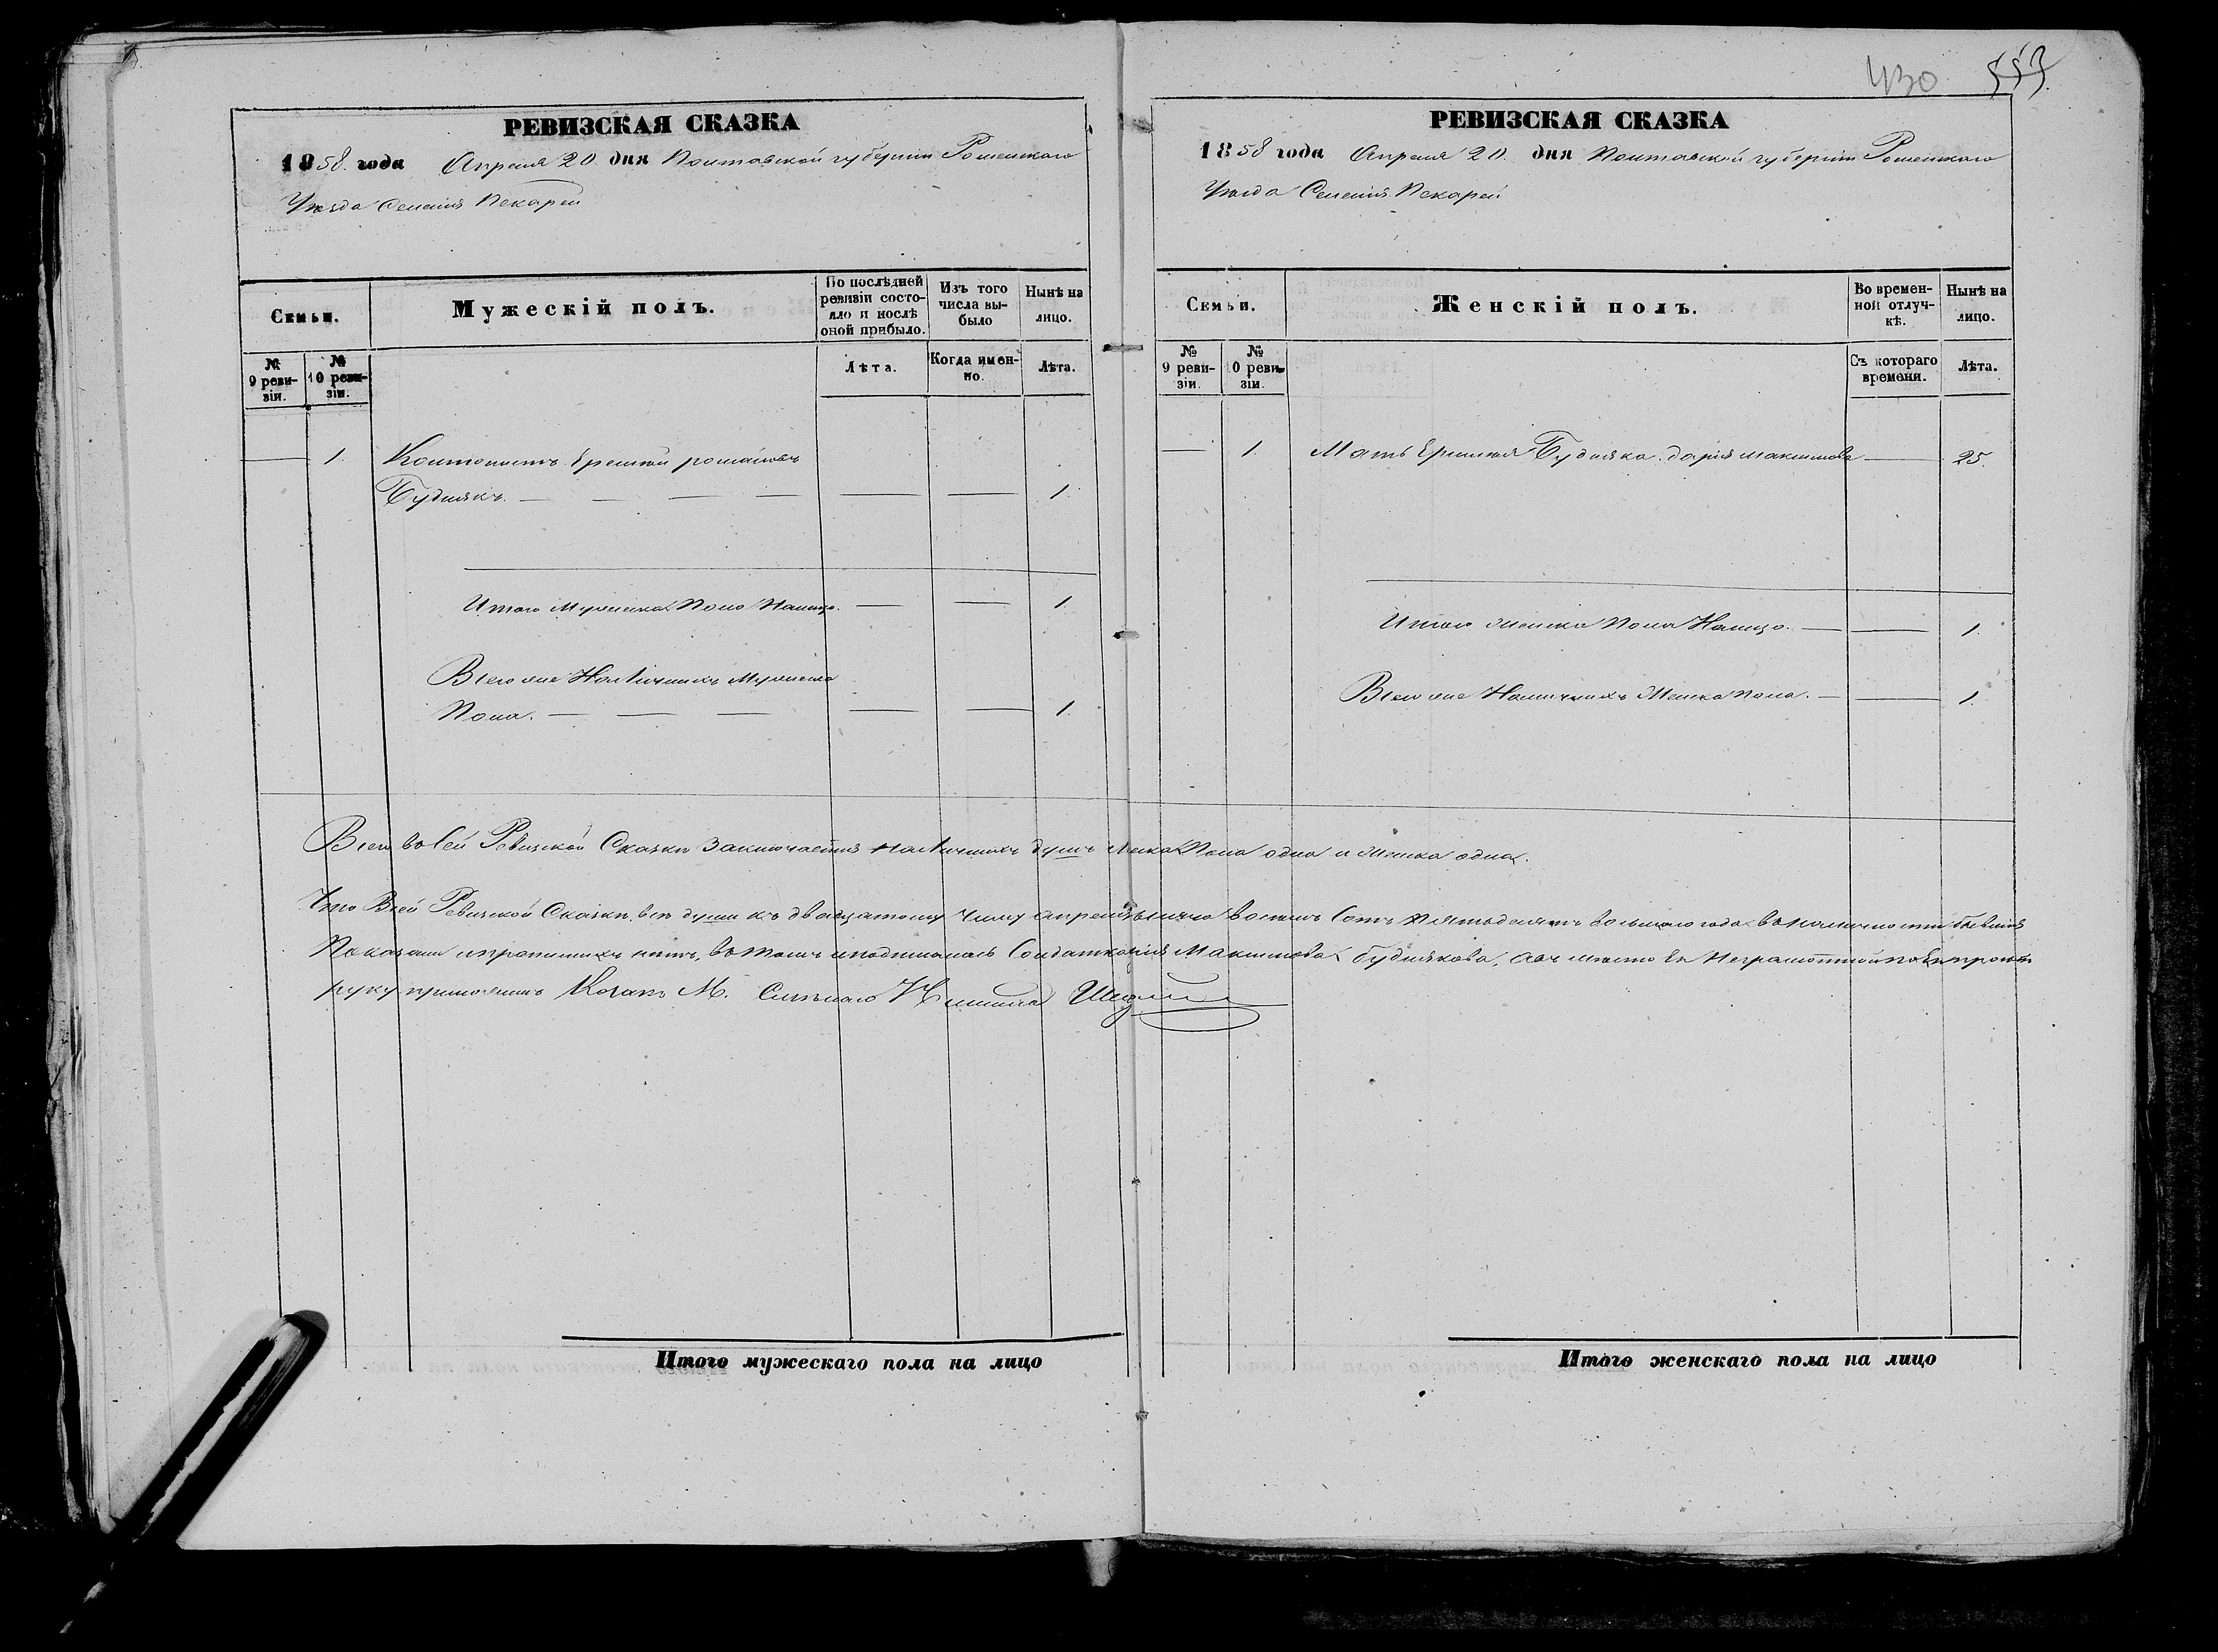 430 553
РЕВИЗСКАЯ СКАЗКА
1858 года Апреля 20 дня Полтавской губернiи Роменскаго
Уѣзда Селенiя Пекарей
Семьи.
Мужескiй полъ.
По послѣдней ревизiи состояло и послѣ оной прибыло.
Изъ того числа выбыло
Нынѣ на лицо.
№ 9 ревизiи.
№ 10 ревизiи.
Лѣта.
Когда именно.
Лѣта.
— 1. Кантонистъ Еремѣй романовъ
Буднякъ. — — — — — — 1.
Итого Мужеска Пола Налицо. — — 1
Всего же Наличныхъ Мужеска
Пола. — — — — — 1.
РЕВИЗСКАЯ СКАЗКА
1858 года Апреля 20 дня Полтавской губернiи Роменскаго
Уѣзда Селенiя Пекарей
Семьи.
Женскiй полъ.
Во временной отлучкѣ.
Нынѣ на лицо.
№ 9 ревизiи.
№ 10 ревизiи.
Съ котораго времени.
Лѣта.
— 1. Мать Еремѣя Будняка дарiя максимова — 25.
Итого Женска Пола Налицо. — — 1.
Всего же Наличныхъ Женска Пола. — — 1.
Всего во Сей Ревизской Сказки заключается наличныхъ душъ Муска Пола одна и Женска одна.
Что Всей Ревизской Сказки всѣ души къ двадцатому числу апреля тысяча восемь сотъ пятьдесятъ восьмаго года во наличности бывшiя
Показаны и прописныхъ нѣтъ, во томъ и подписалась Солдатка дарiя Максимова буднякова, а вместо Ея Неграмотной по Ея прозьби
руку приложилъ Козакъ М. Смѣлаго
Итого мужескаго пола на лицо
Итого женскаго пола на лицо